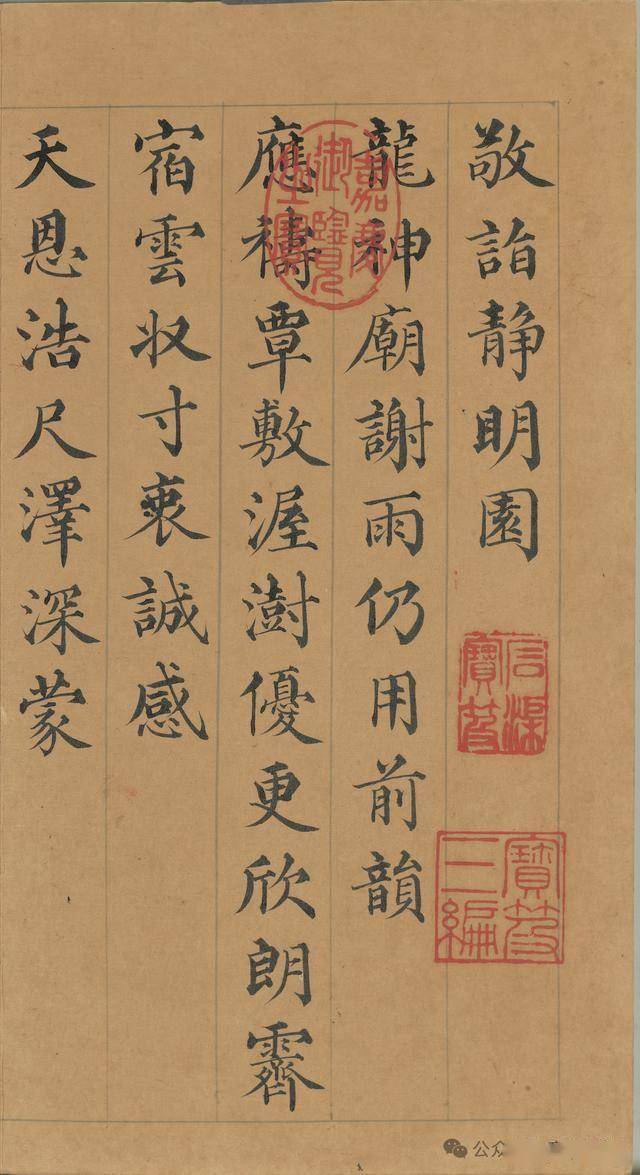 敬詣静明園
龍神廟謝雨仍用前韻
應禱覃敷渥澍優更欣朗霽
宿雲収寸衷誠感
天恩浩尺澤深蒙
嘉慶御覽之寶
石渠寶笈
寶笈三編
公众